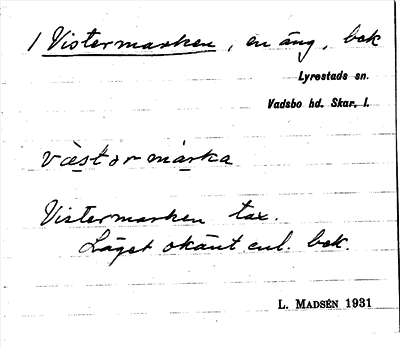 1 Vistermarken, en äng, bek
Lyrestads sn.
Vadsbo hd. Skar. l.
væstərmarka
Vistermarken tax.
Läget okänt enl. bek.
L. MADSÉN 1931